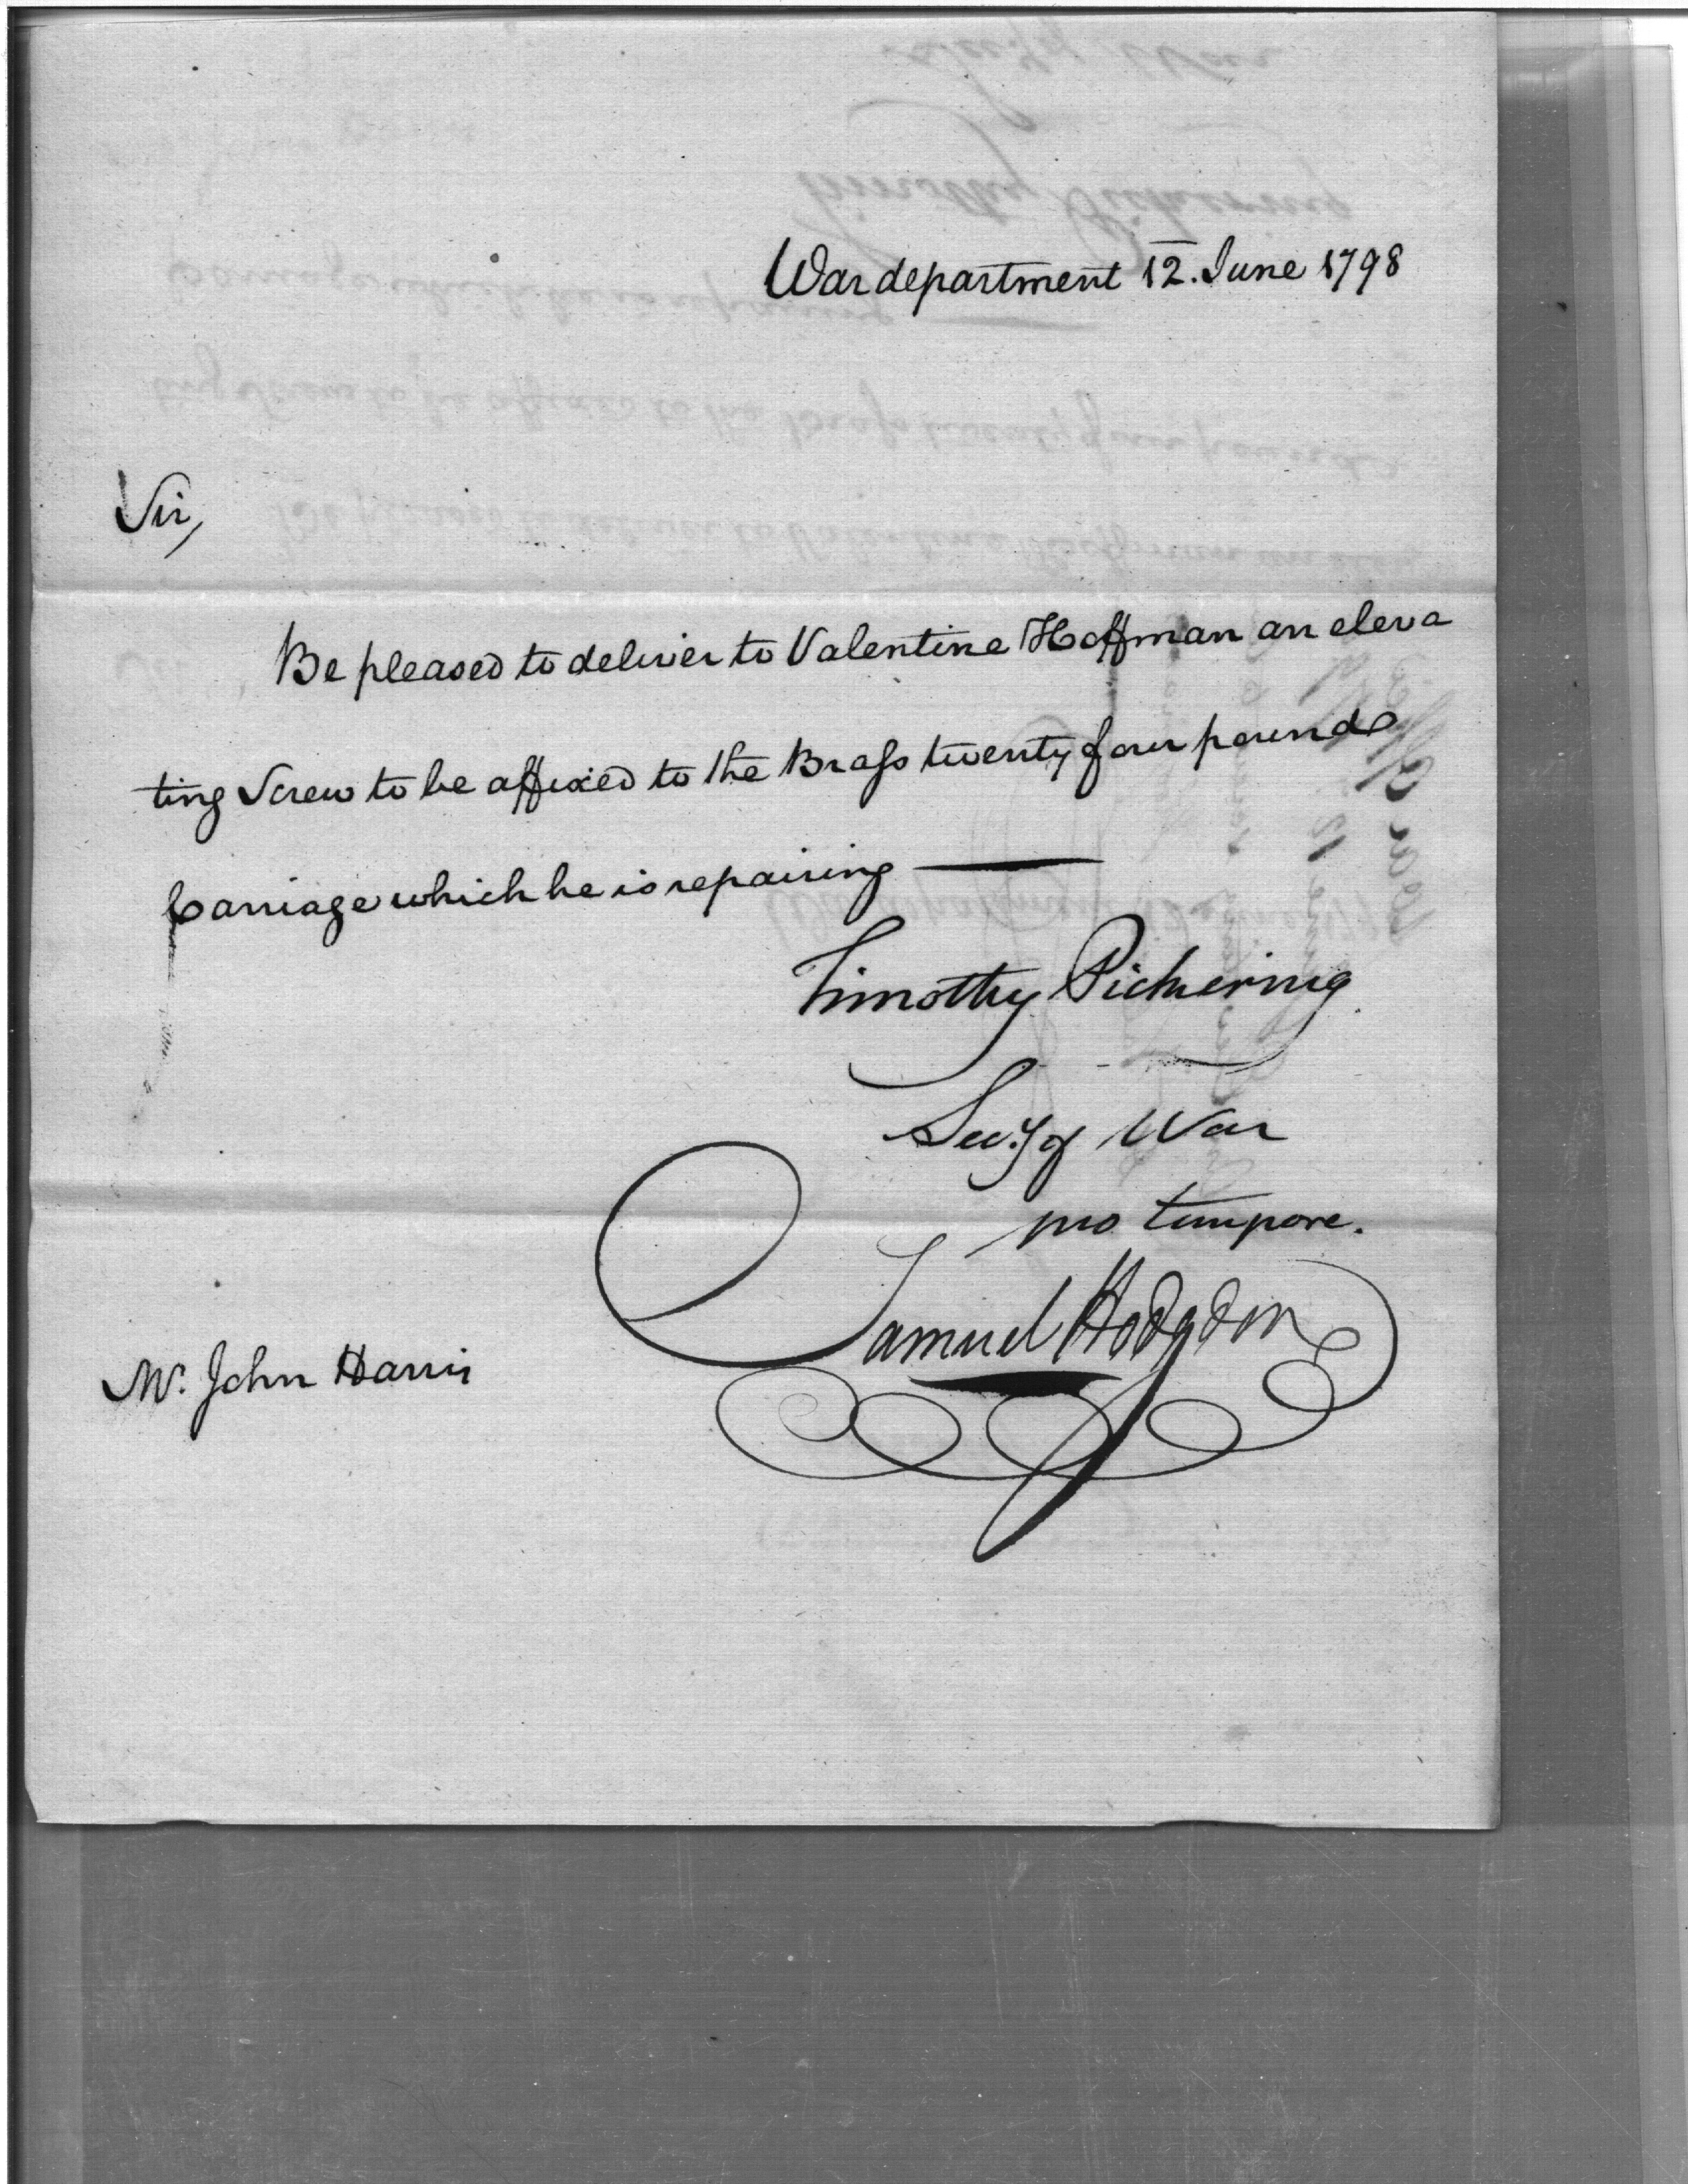 War department 12. June 1798
Sir,
Be pleased to deliver to Valentine Hoffman an eleva
ting Screw to be affixed to the Brass twenty four pounde
Carriage which he is repairing —
Timothy Pickering
Secy of War
pro tempore.
Samuel Hodgdon
Mr. John Harris